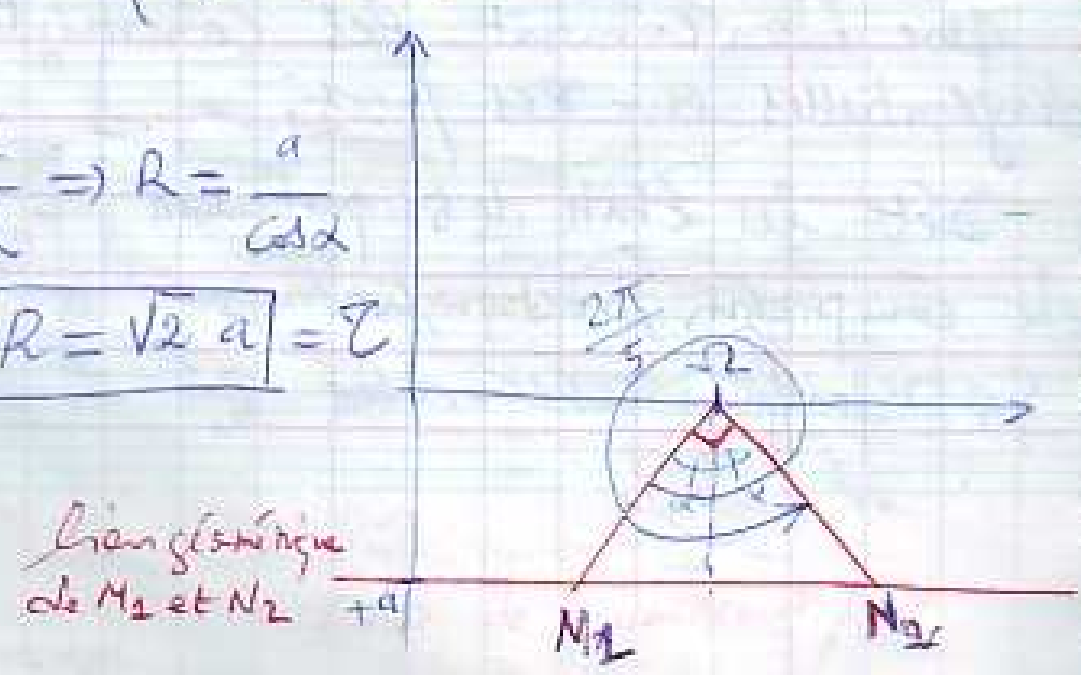 => R = a / cos α
R = √2 a = τ
2π/5
Ω
α α
lieu géométrique
de M1 et N2
+a
M1
N2